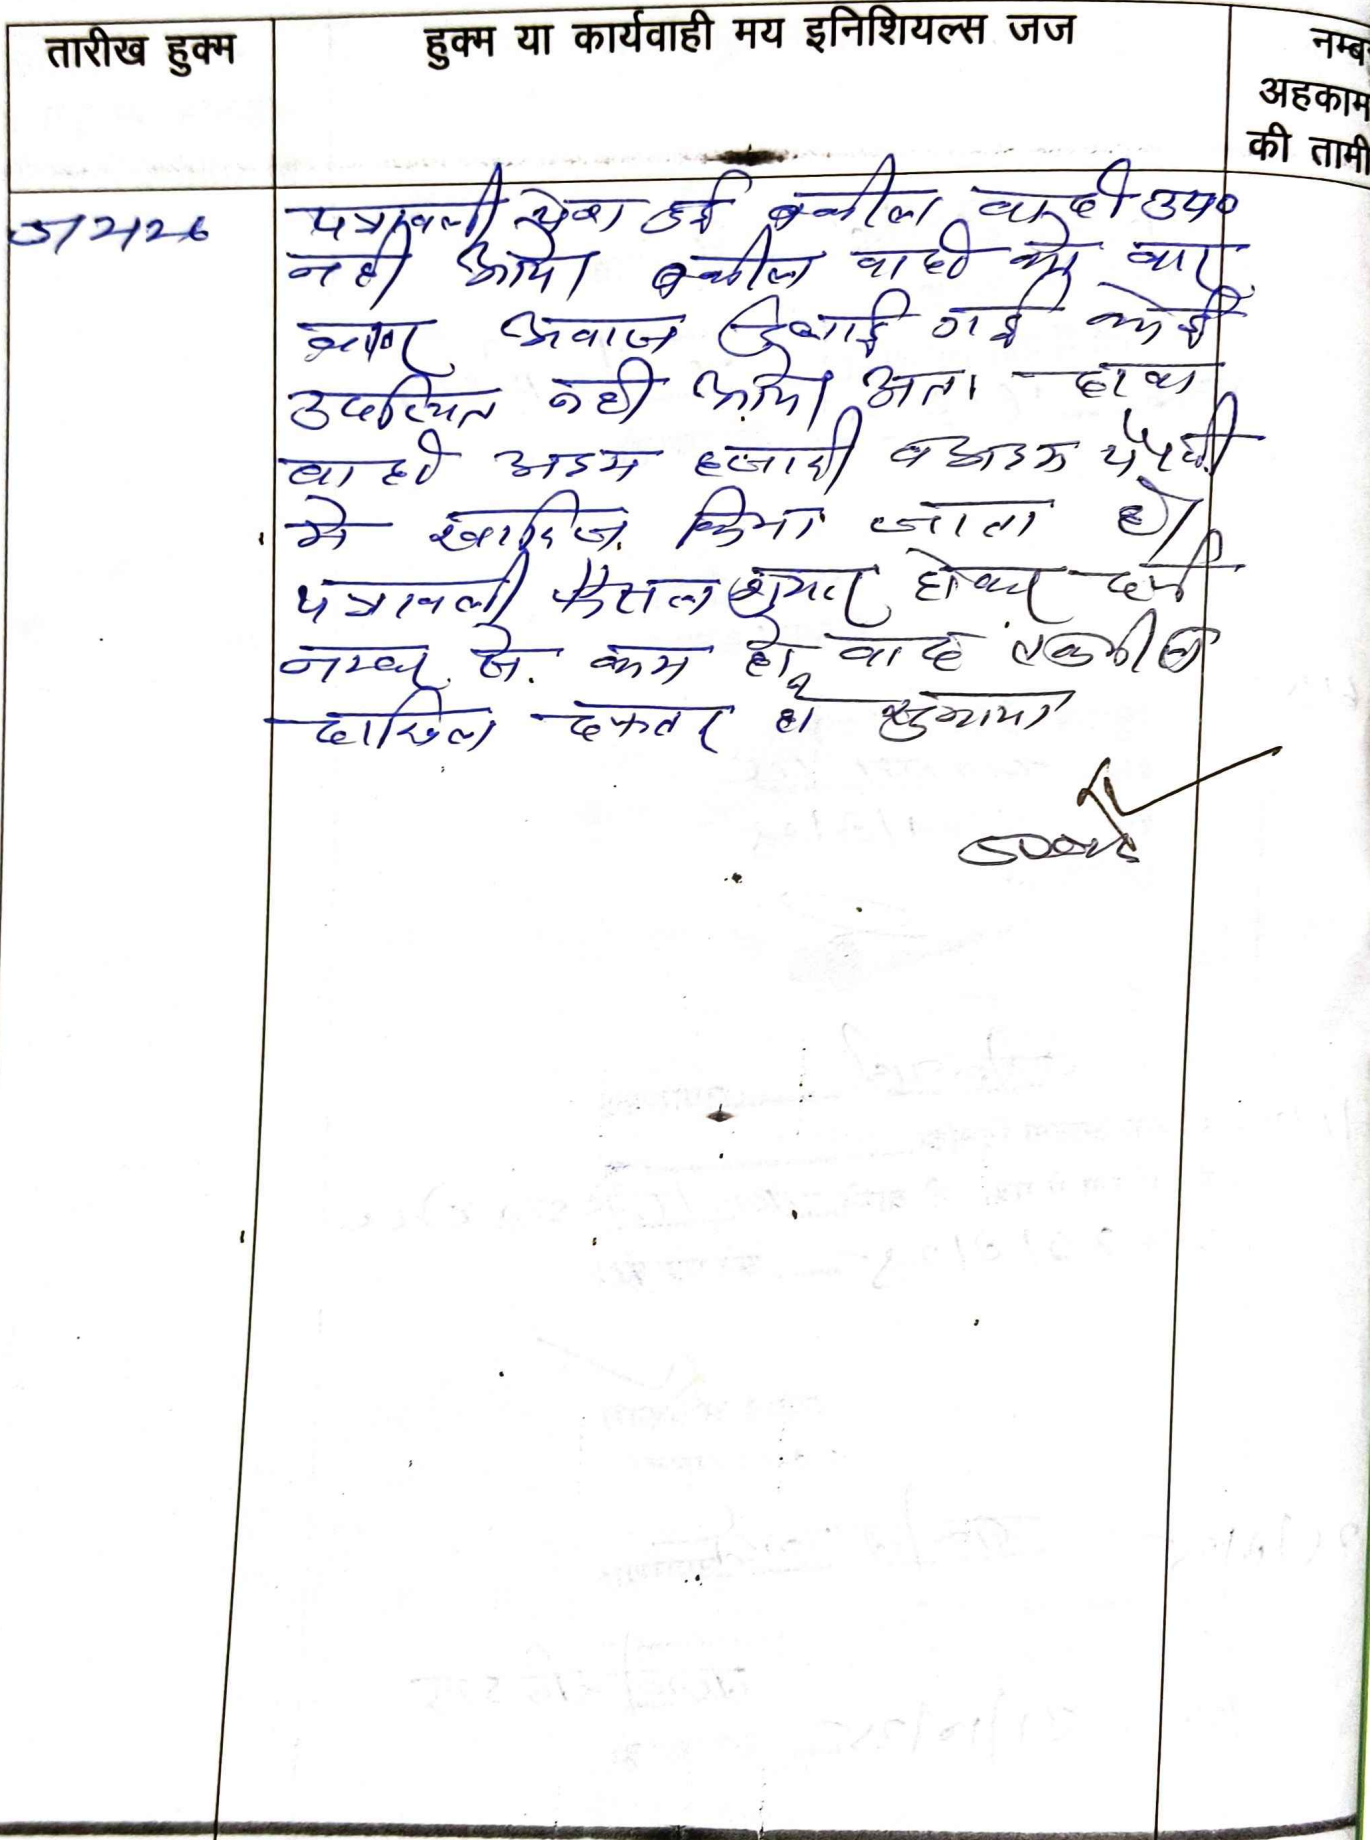 तारीख हुक्म
हुक्म या कार्यवाही मय इनिशियल्स जज
नम्ब
अहकाम
की तामी
5/2/26
पत्रावली पेश हुई वकील वादी उप०
नही आये। वकील वादी को बार
बार अवाज दिलाई गई कोई
उपस्थित नही आया अतः दावा
वादी अदम हजारी व अदम पैरवी
मे खारिज किया जाता है।
पत्रावली फैसल शुमार होकर दर्ज
नम्बर से कम हो, बाद तकमील
दाखिल दफतर हो सुनाया